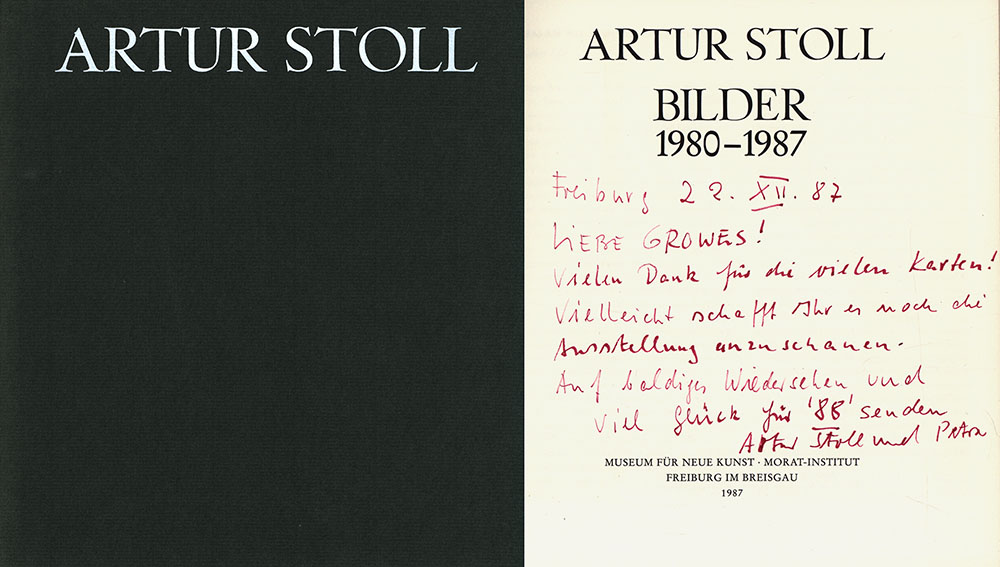 ARTUR STOLL
ARTUR STOLL
BILDER
1980–1987
Freiburg 22. XII. 87
LIEBE GROWES!
Vielen Dank für die vielen Karten!
Vielleicht schafft Ihr es noch die
Ausstellung anzuschauen.
Auf baldiges Wiedersehen und
viel Glück für '88' senden
Artur Stoll und Petra
MUSEUM FÜR NEUE KUNST · MORAT-INSTITUT
FREIBURG IM BREISGAU
1987